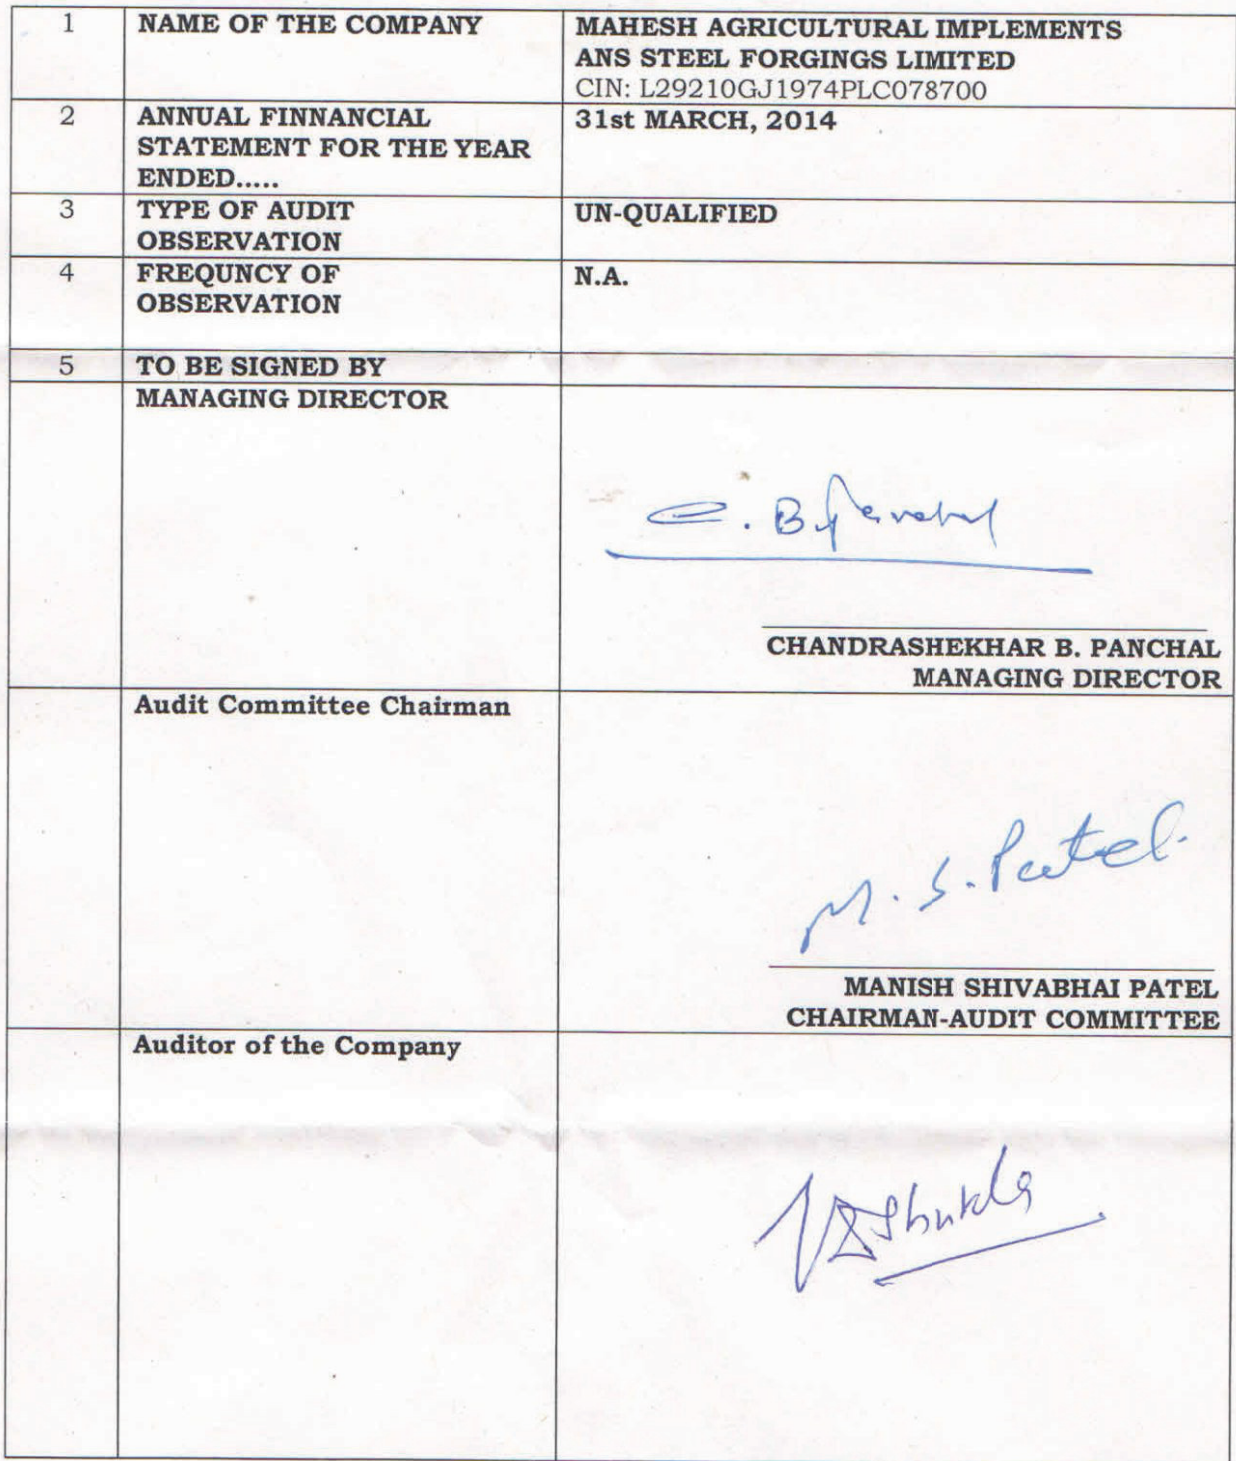 1 NAME OF THE COMPANY MAHESH AGRICULTURAL IMPLEMENTS
ANS STEEL FORGINGS LIMITED
CIN: L29210GJ1974PLC078700
2 ANNUAL FINNANCIAL 31st MARCH, 2014
STATEMENT FOR THE YEAR
ENDED.....
3 TYPE OF AUDIT UN-QUALIFIED
OBSERVATION
4 FREQUNCY OF N.A.
OBSERVATION
5 TO BE SIGNED BY
MANAGING DIRECTOR
C. B. Panchal
CHANDRASHEKHAR B. PANCHAL
MANAGING DIRECTOR
Audit Committee Chairman
M. S. Patel
MANISH SHIVABHAI PATEL
CHAIRMAN-AUDIT COMMITTEE
Auditor of the Company
Shukla